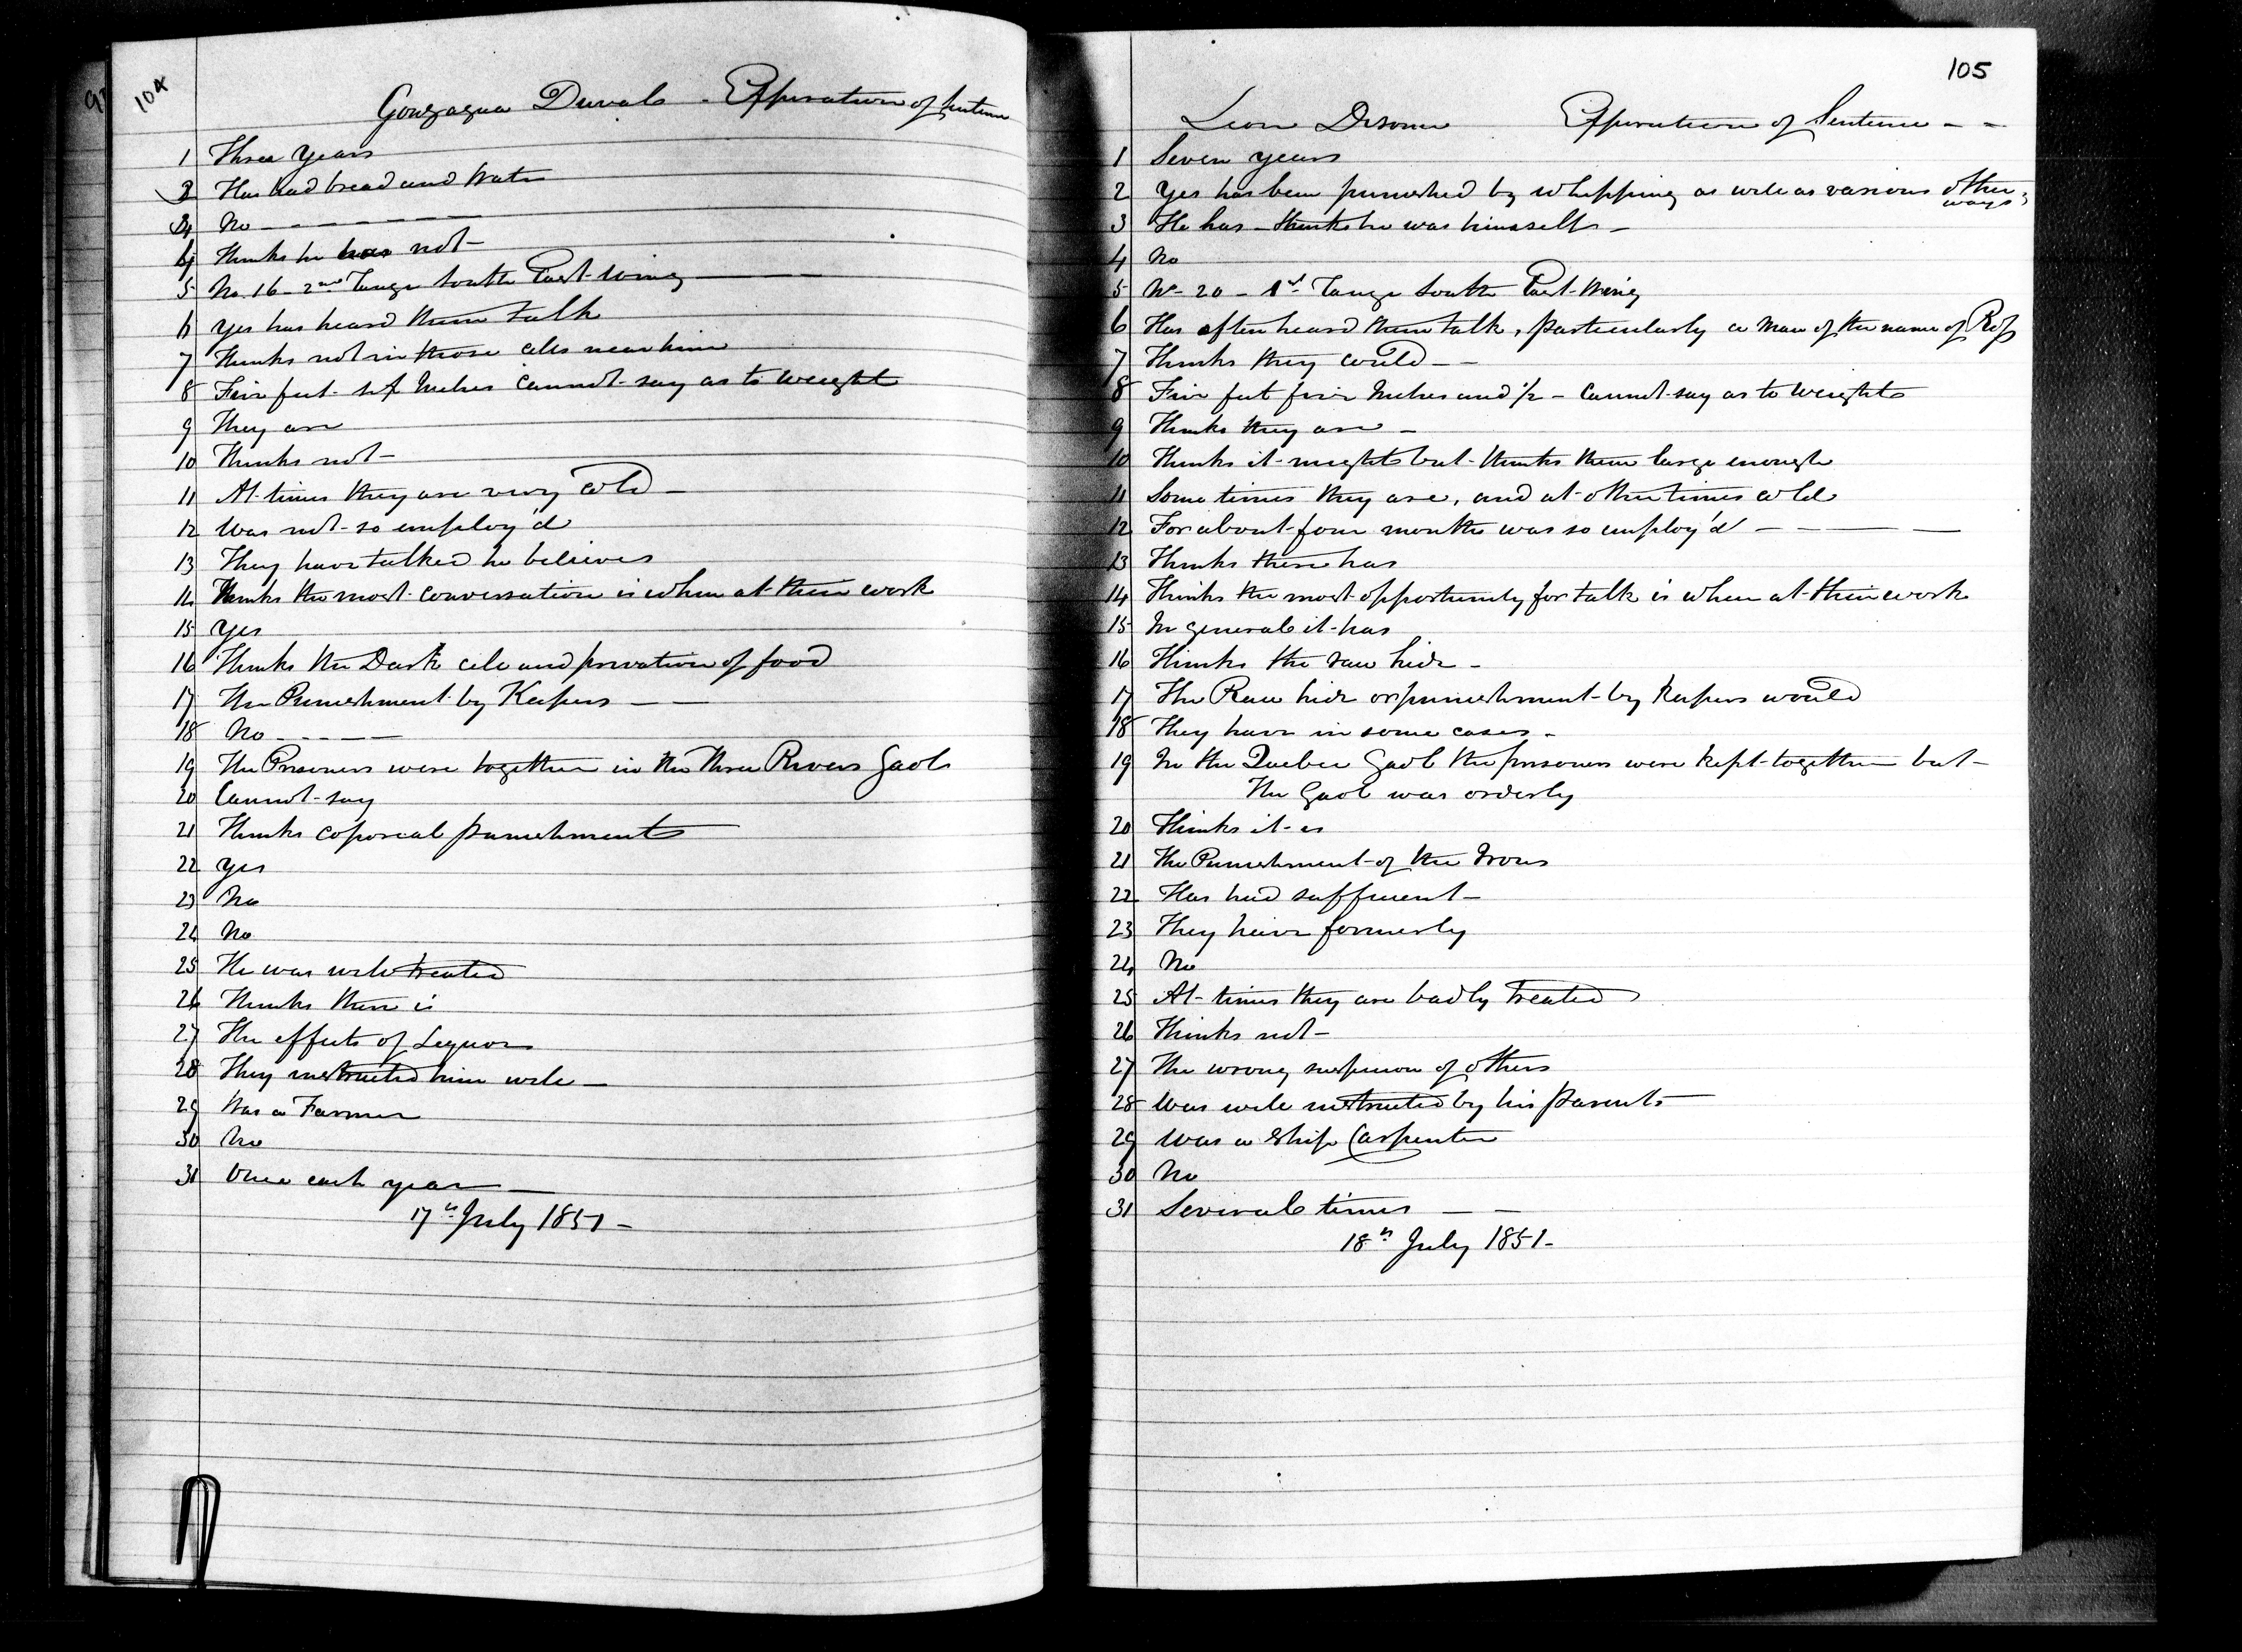 104
Gonzague Duval - Expiration of Sentence
1 Three Years
2 Has had bread and Water
3 No - - - - - -
4 Thinks he has not -
5 No. 16 - 2nd Range South East Wing
6 Yes has heard them talk
7 Thinks not in those cells near him
8 Five feet six Inches cannot say as to weight
9 They are
10 Thinks not -
11 At times they are very Cold -
12 Was not so employ'd
13 They have talked he believes
14 Thinks the most conversation is when at their work
15 Yes
16 Thinks the Dark cell and privation of food
17 The Punishment by Keepers - -
18 No - - - - -
19 The Prisoners were together in the Three Rivers Gaol
20 Cannot say
21 Thinks coporeal punishment
22 Yes
23 No
24 No
25 He was well treated
26 Thinks there is
27 The effects of Liquor
28 They instructed him well -
29 Was a Farmer
30 No
31 Once each year -
17th July 1851 -
105
Leon Expiration of Sentence - -
1 Seven years
2 Yes has been punished by whipping as well as various other
ways
3 He has - thinks he was himself -
4 No
5 No 20 - 1st Range South East Wing
6 Has often heard them talk, particularly a man of the name of Ross
7 Thinks they could - -
8 Five feet five Inches and 1/2 - Cannot say as to Weight
9 Thinks they are -
10 Thinks it might but thinks them large enough
11 Some times they are, and at other times cold
12 For about four months was so employ'd - - - -
13 Thinks there has
14 Thinks the most opportunity for talk is when at their work
15 In general it has
16 Thinks the raw hide -
17 The Raw hide or punishment by keepers would
18 They have in some cases -
19 In the Quebec Gaol the prisoners were kept together but -
The Gaol was orderly
20 Thinks it is
21 The Punishment of the Irons
22 Has had sufficient -
23 They have formerly
24 No
25 At times they are badly treated
26 Thinks not -
27 The wrong suspicion of others
28 Was well instructed by his parents
29 Was a Ship Carpenter
30 No
31 Several times - -
18th July 1851 -